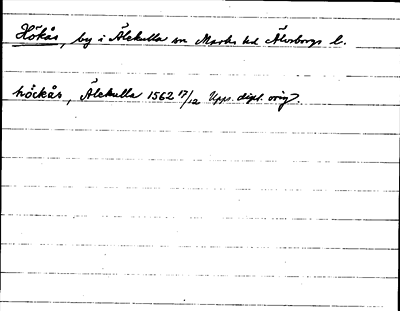 Hökås, by i Älekulla sn Marks hd Älvsborgs l.
höckås, Älekulla 1562 17/12 Upps. dipl. orig.